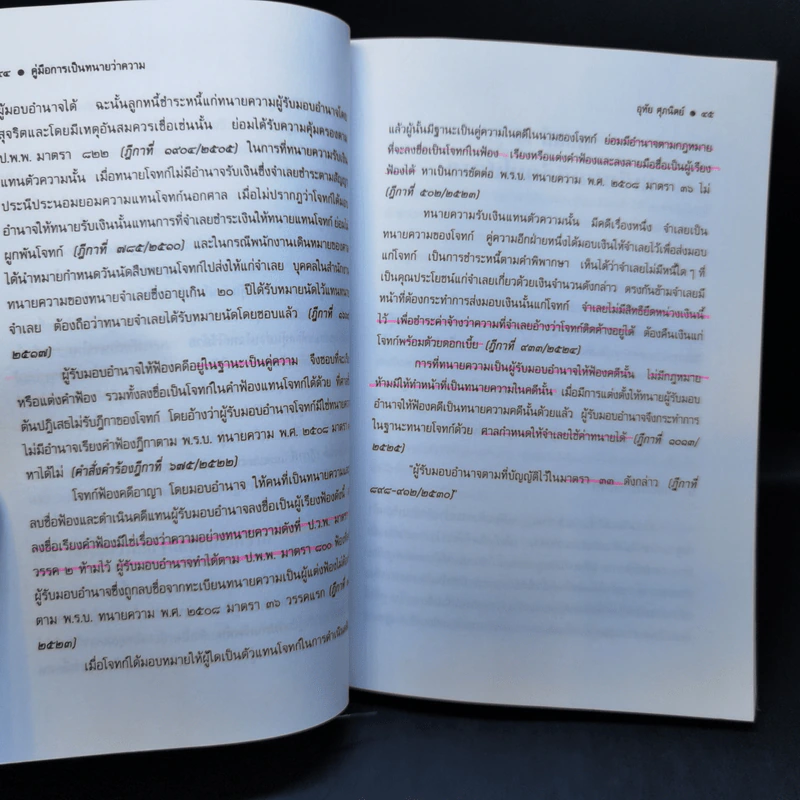 ๔๔ ● คู่มือการเป็นทนายว่าความ
ผู้มอบอำนาจได้ ฉะนั้นลูกหนี้ชำระหนี้แก่ทนายความผู้รับมอบอำนาจโดย
สุจริตและโดยมีเหตุอันสมควรเชื่อเช่นนั้น ย่อมได้รับความคุ้มครองตาม
ป.พ.พ. มาตรา ๘๒๒ (ฎีกาที่ ๑๙๐๔/๒๕๐๕) ในการที่ทนายความรับเงิน
แทนตัวความนั้น เมื่อทนายโจทก์ไม่มีอำนาจรับเงินซึ่งจำเลยชำระตามสัญญา
ประนีประนอมยอมความแทนโจทก์นอกศาล เมื่อไม่ปรากฏว่าโจทก์ได้มอบ
อำนาจให้ทนายรับเงินนั้นแทนการที่จำเลยชำระเงินให้ทนายแทนโจทก์ ย่อมไม่
ผูกพันโจทก์ (ฎีกาที่ ๗๘๕/๒๕๐๐) และในกรณีพนักงานเดินหมายของศาล
ได้นำหมายกำหนดวันนัดสืบพยานโจทก์ไปส่งให้แก่จำเลย บุคคลในสำนักงาน
ทนายความของทนายจำเลยซึ่งอายุเกิน ๒๐ ปีได้รับหมายนัดไว้แทนทนาย
จำเลย ต้องถือว่าทนายจำเลยได้รับหมายนัดโดยชอบแล้ว (ฎีกาที่
๒๕๐๗)
ผู้รับมอบอำนาจให้ฟ้องคดีอยู่ในฐานะเป็นคู่ความ จึงชอบที่จะ
หรือแต่งคำฟ้อง รวมทั้งลงชื่อเป็นโจทก์ในคำฟ้องแทนโจทก์ได้ด้วย ที่ศาลชั้น
ต้นปฏิเสธไม่รับฎีกาของโจทก์ โดยอ้างว่าผู้รับมอบอำนาจโจทก์มิใช่ทนายความ
ไม่มีอำนาจเรียงคำฟ้องฎีกาตาม พ.ร.บ. ทนายความ พ.ศ. ๒๕๐๘ มาตรา
หาได้ไม่ (คำสั่งคำร้องฎีกาที่ ๖๗๕/๒๕๒๒)
โจทก์ฟ้องคดีอาญา โดยมอบอำนาจ ให้คนที่เป็นทนายความและ
ลงชื่อฟ้องและดำเนินคดีแทนผู้รับมอบอำนาจลงชื่อเป็นผู้เรียงฟ้องดังนี้
ลงชื่อเรียงคำฟ้องมิใช่เรื่องว่าความอย่างทนายความดังที่ ป.ว.พ. มาตรา
วรรค ๒ ห้ามไว้ ผู้รับมอบอำนาจทำได้ตาม ป.พ.พ. มาตรา ๘๐๐ ฟ้อง
ผู้รับมอบอำนาจซึ่งถูกลบชื่อจากทะเบียนทนายความเป็นผู้แต่งฟ้องไม่
ตาม พ.ร.บ. ทนายความ พ.ศ. ๒๕๐๘ มาตรา ๓๖ วรรคแรก (ฎีกาที่
๒๕๒๓)
เมื่อโจทก์ได้มอบหมายให้ผู้ใดเป็นตัวแทนโจทก์ในการดำเนินคดี
อุทัย ศุภนิตย์ ● ๔๕
แล้วผู้นั้นมีฐานะเป็นคู่ความในคดีในนามของโจทก์ ย่อมมีอำนาจตามกฎหมาย
ที่จะลงชื่อเป็นโจทก์ในฟ้อง เรียงหรือแต่งคำฟ้องและลงลายมือชื่อเป็นผู้เรียง
ฟ้องได้ หาเป็นการขัดต่อ พ.ร.บ. ทนายความ พ.ศ. ๒๕๐๘ มาตรา ๓๖ ไม่
(ฎีกาที่ ๕๐๒/๒๕๒๓)
ทนายความรับเงินแทนตัวความนั้น มีคดีเรื่องหนึ่ง จำเลยเป็น
ทนายความของโจทก์ คู่ความอีกฝ่ายหนึ่งได้มอบเงินให้จำเลยไว้เพื่อส่งมอบ
แก่โจทก์ เป็นการชำระหนี้ตามคำพิพากษา เห็นได้ว่าจำเลยไม่มีหนี้ใด ๆ ที่
เป็นคุณประโยชน์แก่จำเลยเกี่ยวด้วยเงินจำนวนดังกล่าว ตรงกันข้ามจำเลยมี
หน้าที่ต้องกระทำการส่งมอบเงินนั้นแก่โจทก์ จำเลยไม่มีสิทธิยึดหน่วงเงินนี้
ไว้ เพื่อชำระค่าจ้างว่าความที่จำเลยอ้างว่าโจทก์ติดค้างอยู่ได้ ต้องคืนเงินแก่
โจทก์พร้อมด้วยดอกเบี้ย (ฎีกาที่ ๙๓๓/๒๕๒๔)
การที่ทนายความเป็นผู้รับมอบอำนาจให้ฟ้องคดีนั้น ไม่มีกฎหมาย
ห้ามมิให้ทำหน้าที่เป็นทนายความในคดีนั้น เมื่อมีการแต่งตั้งให้ทนายผู้รับมอบ
อำนาจให้ฟ้องคดีเป็นทนายความคดีนั้นด้วยแล้ว ผู้รับมอบอำนาจจึงกระทำการ
ในฐานะทนายโจทก์ด้วย ศาลกำหนดให้จำเลยใช้ค่าทนายได้ (ฎีกาที่ ๑๐๐๓/
๒๕๒๕)
"ผู้รับมอบอำนาจตามที่บัญญัติไว้ในมาตรา ๓๓ ดังกล่าว (ฎีกาที่
๘๙๘-๙๐๒/๒๕๓๐)"